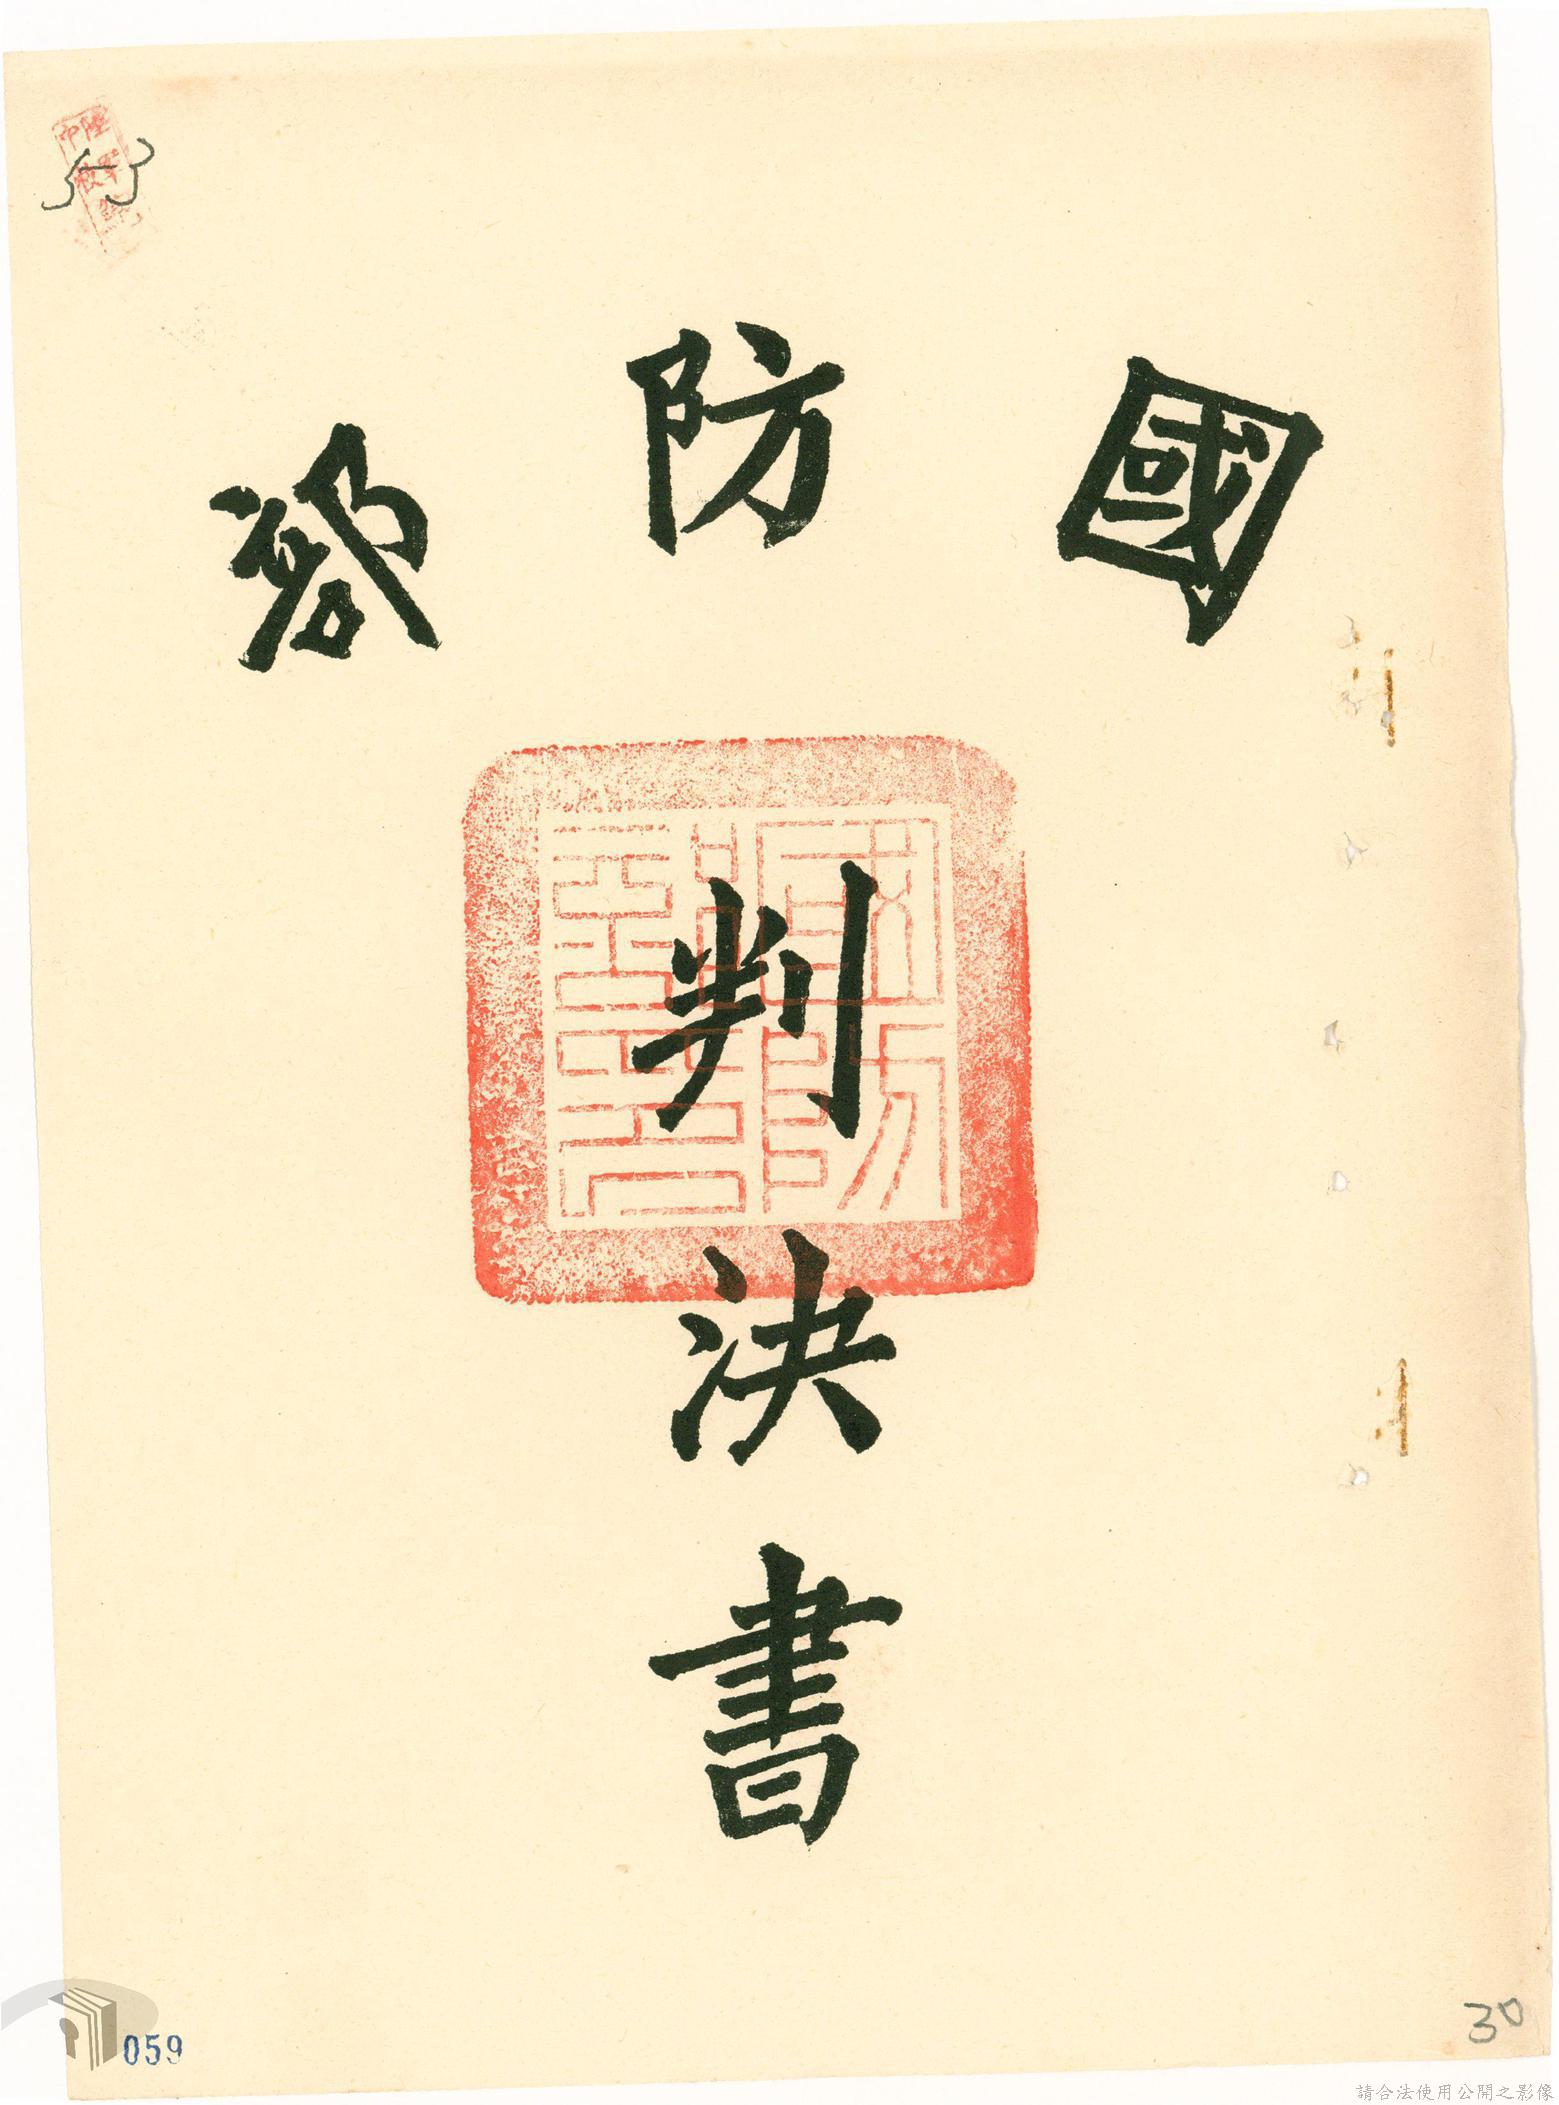 國防部
判決書
53
059
30
請合法使用公開之影像